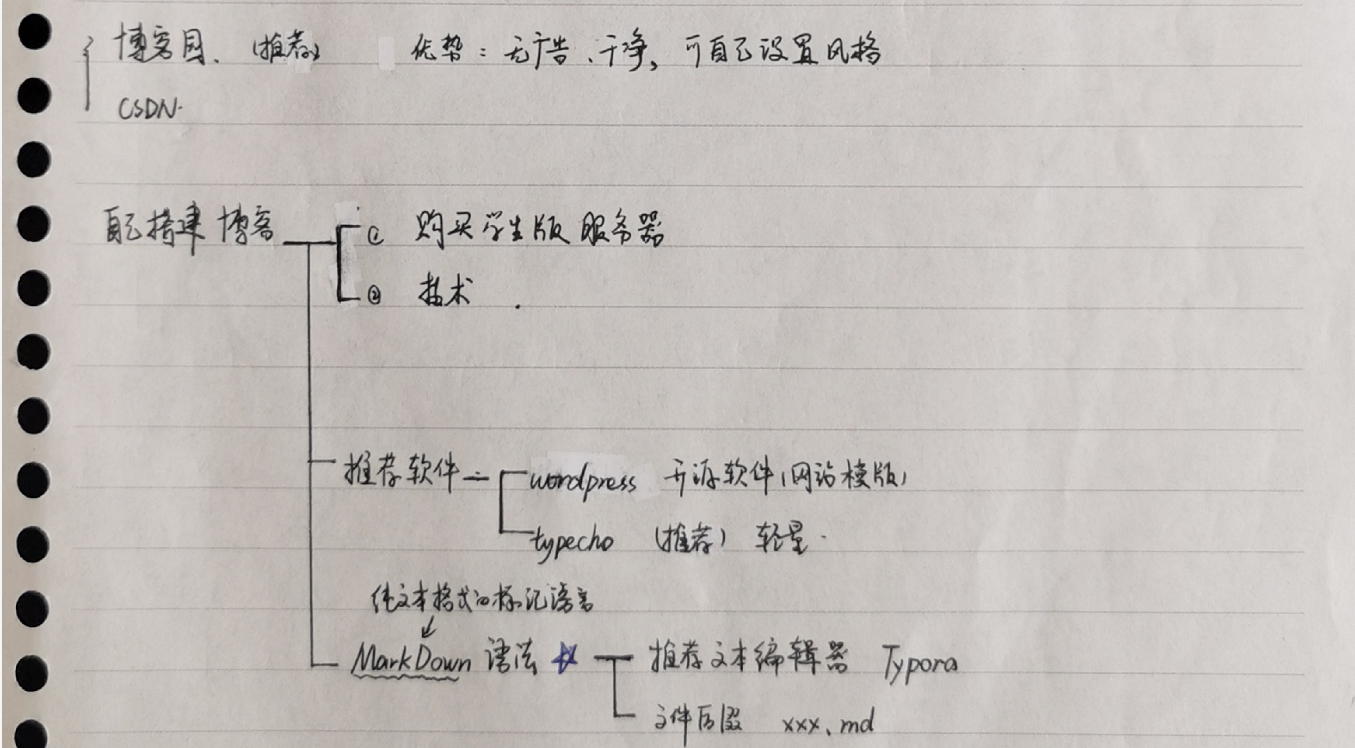 博客园、(推荐) 优势：无广告、干净，可自己设置风格
CSDN.
自己搭建博客 ① 购买学生版服务器
② 技术.
推荐软件 wordpress 开源软件(网站模版)
typecho (推荐) 轻量.
纯文本格式的标记语言
MarkDown 语法 推荐文本编辑器 Typora
文件后缀 xxx.md